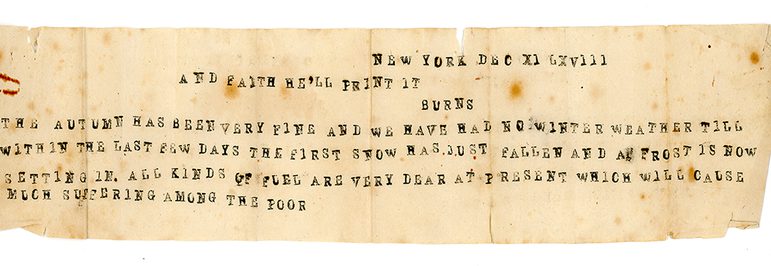 NEW YORK DEC XI LXVIII
AND FAITH HE'LL PRINT IT
BURNS
THE AUTUMN HAS BEEN VERY FINE AND WE HAVE HAD NO WINTER WEATHER TILL
WITHIN THE LAST FEW DAYS THE FIRST SNOW HAS JUST FALLEN AND A FROST IS NOW
SETTING IN. ALL KINDS OF FUEL ARE VERY DEAR AT PRESENT WHICH WILL CAUSE
MUCH SUFFERING AMONG THE POOR